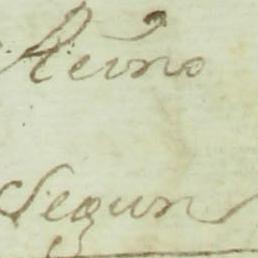 Reino
Segun